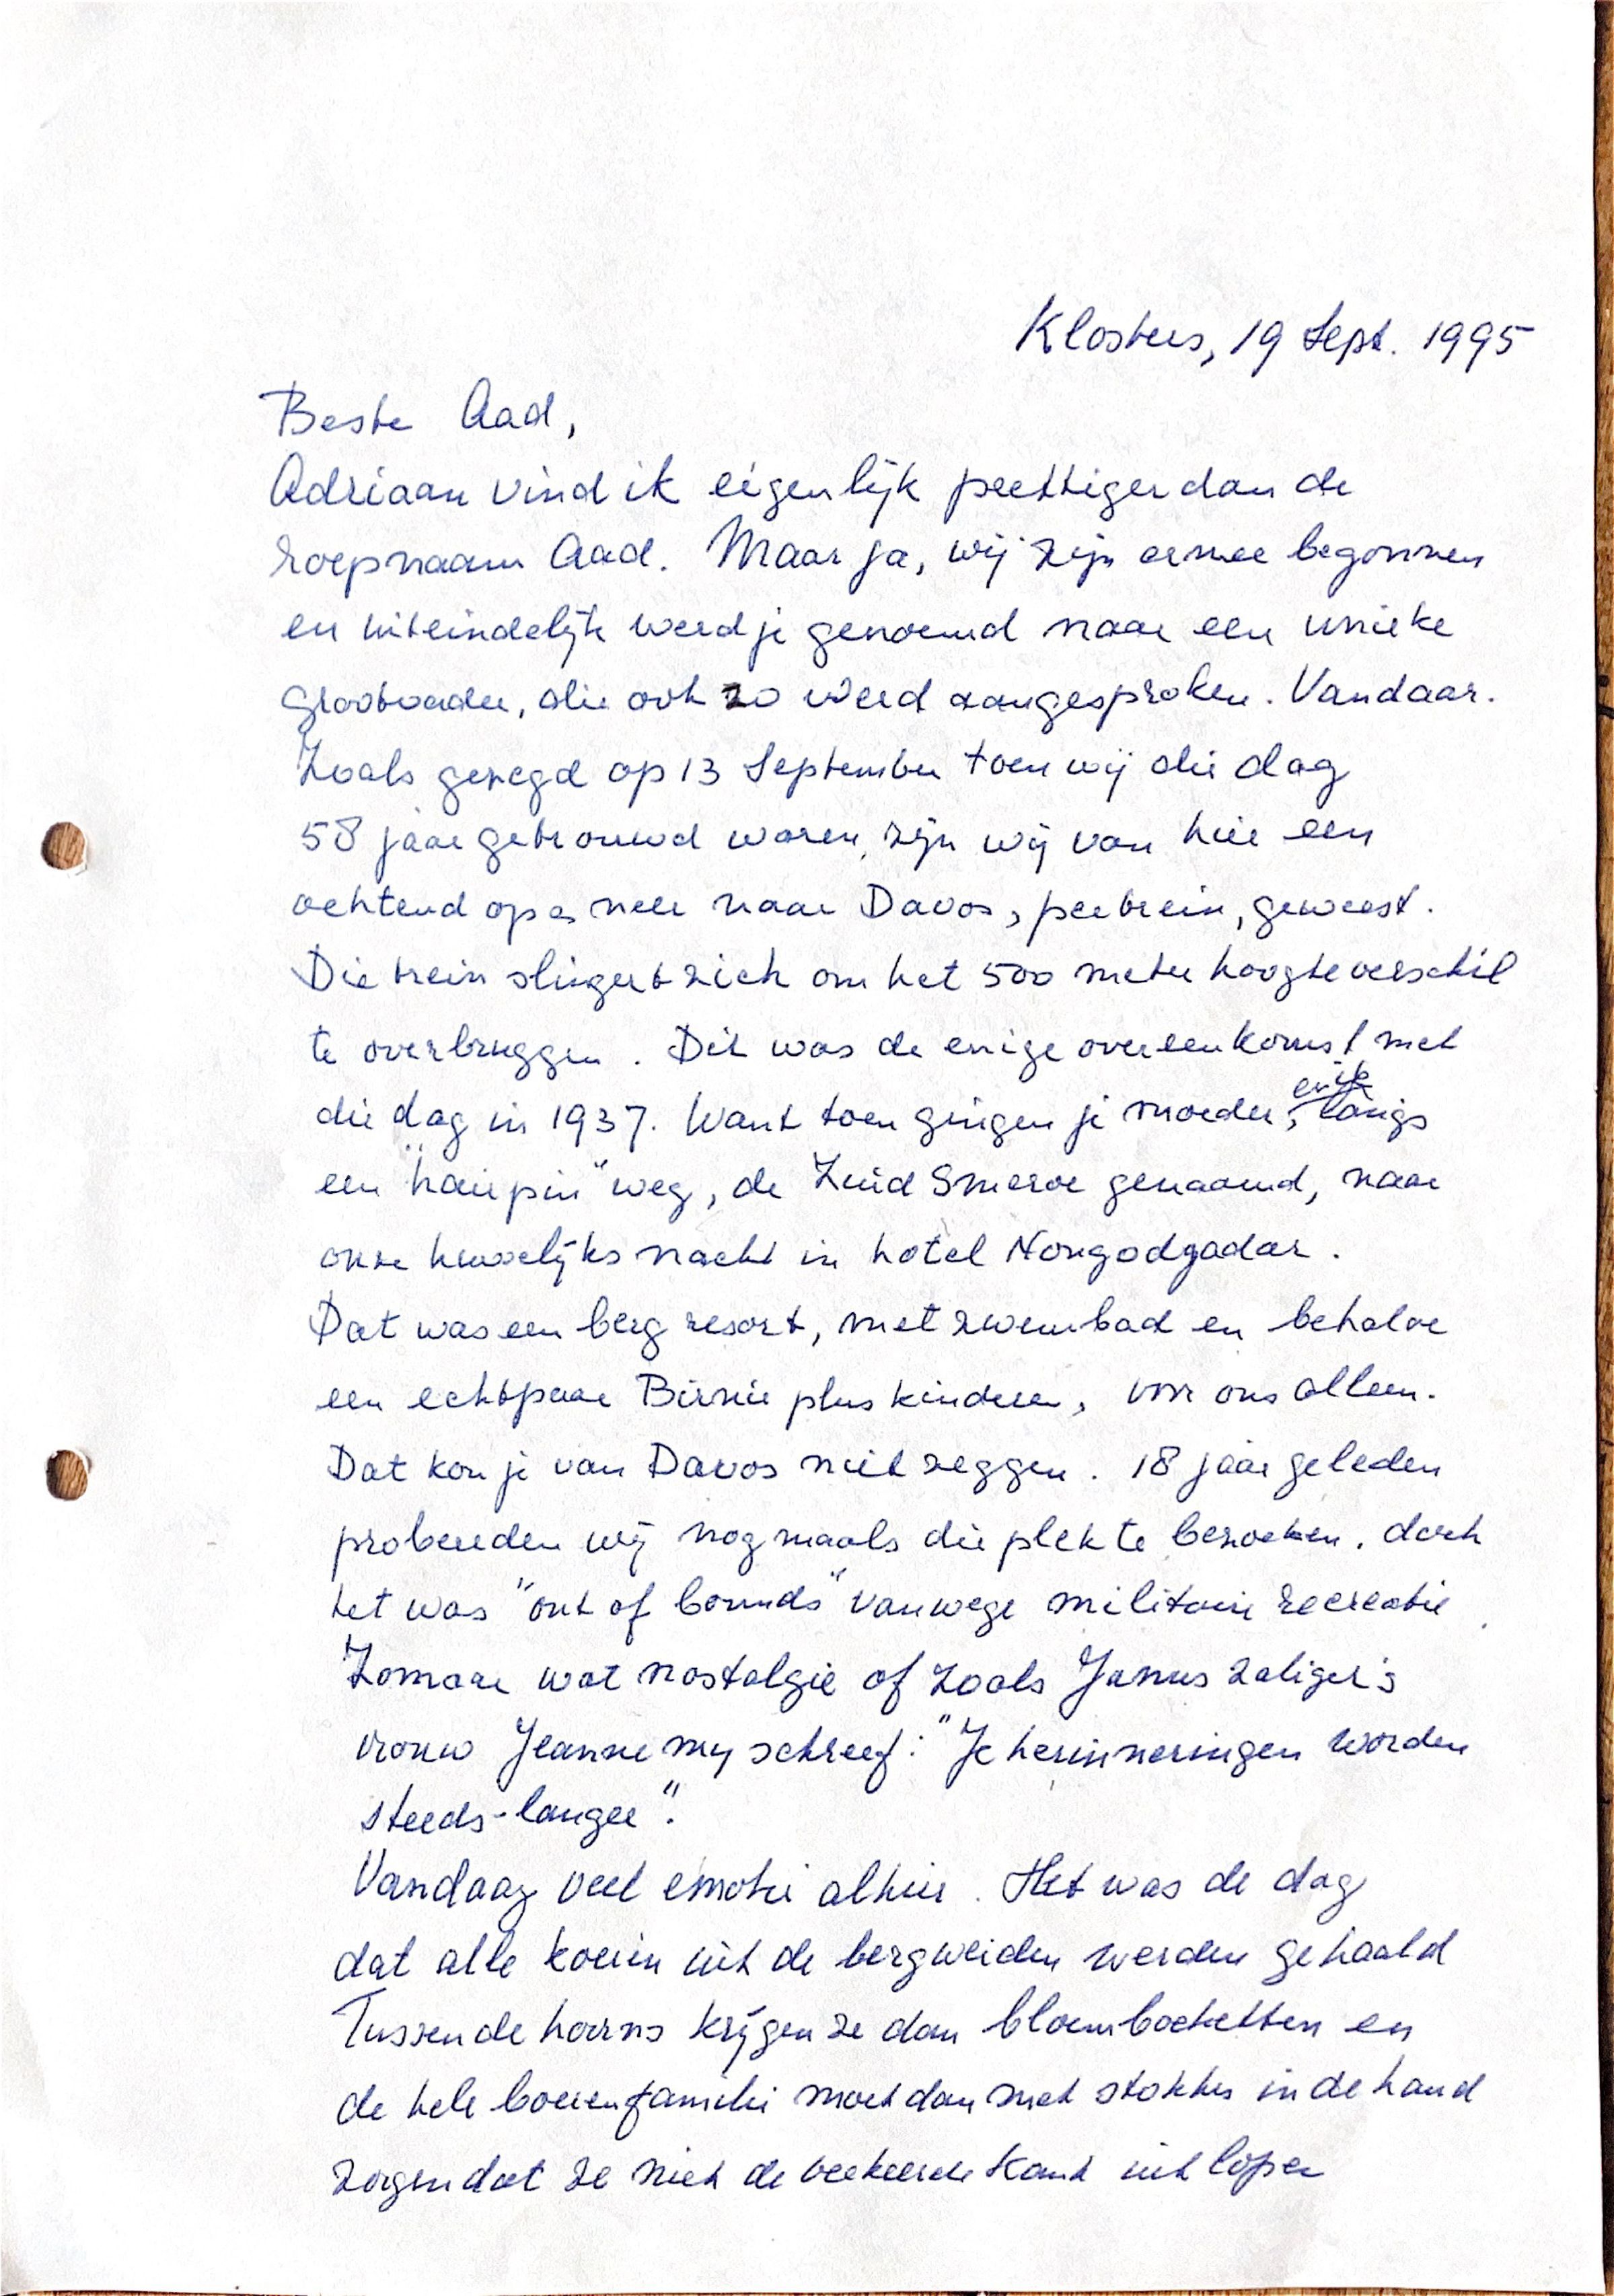 Klosters, 19 Sept. 1995
Beste Aad,
Adriaan vind ik eigenlijk prettiger dan de
roepnaam Aad. Maar ja, wij zijn ermee begonnen
en uiteindelijk werd je genoemd naar een unieke
grootvader, die ook zo werd aangesproken. Vandaar.
Zoals gezegd op 13 September toen wij die dag
58 jaar getrouwd waren, zijn wij van hier een
ochtend op en neer naar Davos, per trein, geweest.
Die trein slingert zich om het 500 meter hoogteverschil
te overbruggen. Dit was de enige overeenkomst met
die dag in 1937. Want toen gingen je moeder, en ik langs
een "hairpin" weg, de Zuid Smeroe genaamd, naar
onze huwelijks nacht in hotel Nongodgadar.
Dat was een berg resort, met zwembad en behalve
een echtpaar Birnie plus kinderen, voor ons alleen.
Dat kon je van Davos niet zeggen. 18 jaar geleden
probeerden wij nogmaals die plek te bezoeken. doch
het was "out of bounds" vanwege militair recreatie
Zomaar wat nostalgie of zoals Janus zaliger's
vrouw Jeanne my schreef: "Je herinneringen worden
steeds-langer".
Vandaag veel emotie alhier. Het was de dag
dat alle koeien uit de bergweiden werden gehaald
Tussen de hoorns krijgen ze dan bloemboeketten en
de hele boerenfamilie moet dan met stokken in de hand
zorgen dat ze niet de verkeerde kant uit lopen